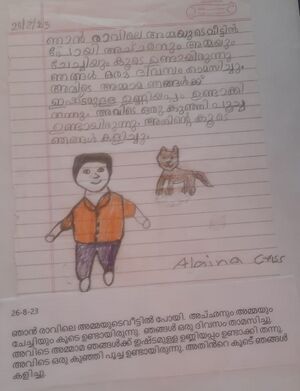 25/8/23
ഞാൻ രാവിലെ അമ്മയുടെ വീട്ടിൽ
പോയി അച്ഛനും അമ്മയും
ചേച്ചിയും കൂടെ ഉണ്ടായിരുന്നു
ഞങ്ങൾ ഒരു ദിവസം താമസിച്ചു
അവിടെ അമ്മാമ ഞങ്ങൾക്ക്
ഇഷ്ടമുള്ള ഉണ്ണിയപ്പം ഉണ്ടാക്കി
തന്നു അവിടെ ഒരു കുഞ്ഞി പൂച്ച
ഉണ്ടായിരുന്നു അതിന്റെ കൂടെ
ഞങ്ങൾ കളിച്ചു
Alaina
26-8-23
ഞാൻ രാവിലെ അമ്മയുടെവീട്ടിൽ പോയി. അച്ഛനും അമ്മയും
ചേച്ചിയും കൂടെ ഉണ്ടായിരുന്നു. ഞങ്ങൾ ഒരു ദിവസം താമസിച്ചു.
അവിടെ അമ്മാമ ഞങ്ങൾക്ക് ഇഷ്ടമുള്ള ഉണ്ണിയപ്പം ഉണ്ടാക്കി തന്നു.
അവിടെ ഒരു കുഞ്ഞി പൂച്ച ഉണ്ടായിരുന്നു. അതിൻറെ കൂടെ ഞങ്ങൾ
കളിച്ചു.